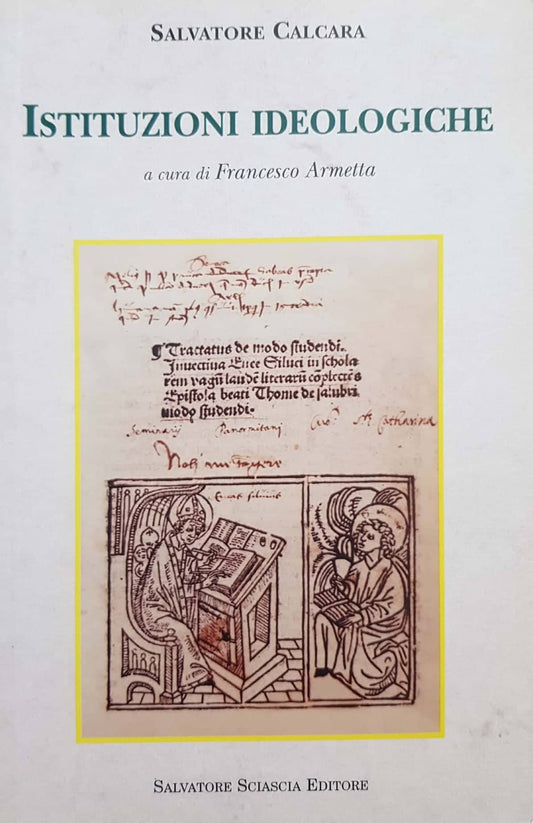 SALVATORE CALCARA
ISTITUZIONI IDEOLOGICHE
a cura di Francesco Armetta
¶ Tractatus de modo studendi.
Inuectiua Enee Siluci in schola
rem vagū laudē literarū cōplectēs
Epistola beati Thome de salubri
modo studendi.
Seminarij Panormitani Cub. St Catharina
Noli me tangere
Eneas siluius
SALVATORE SCIASCIA EDITORE